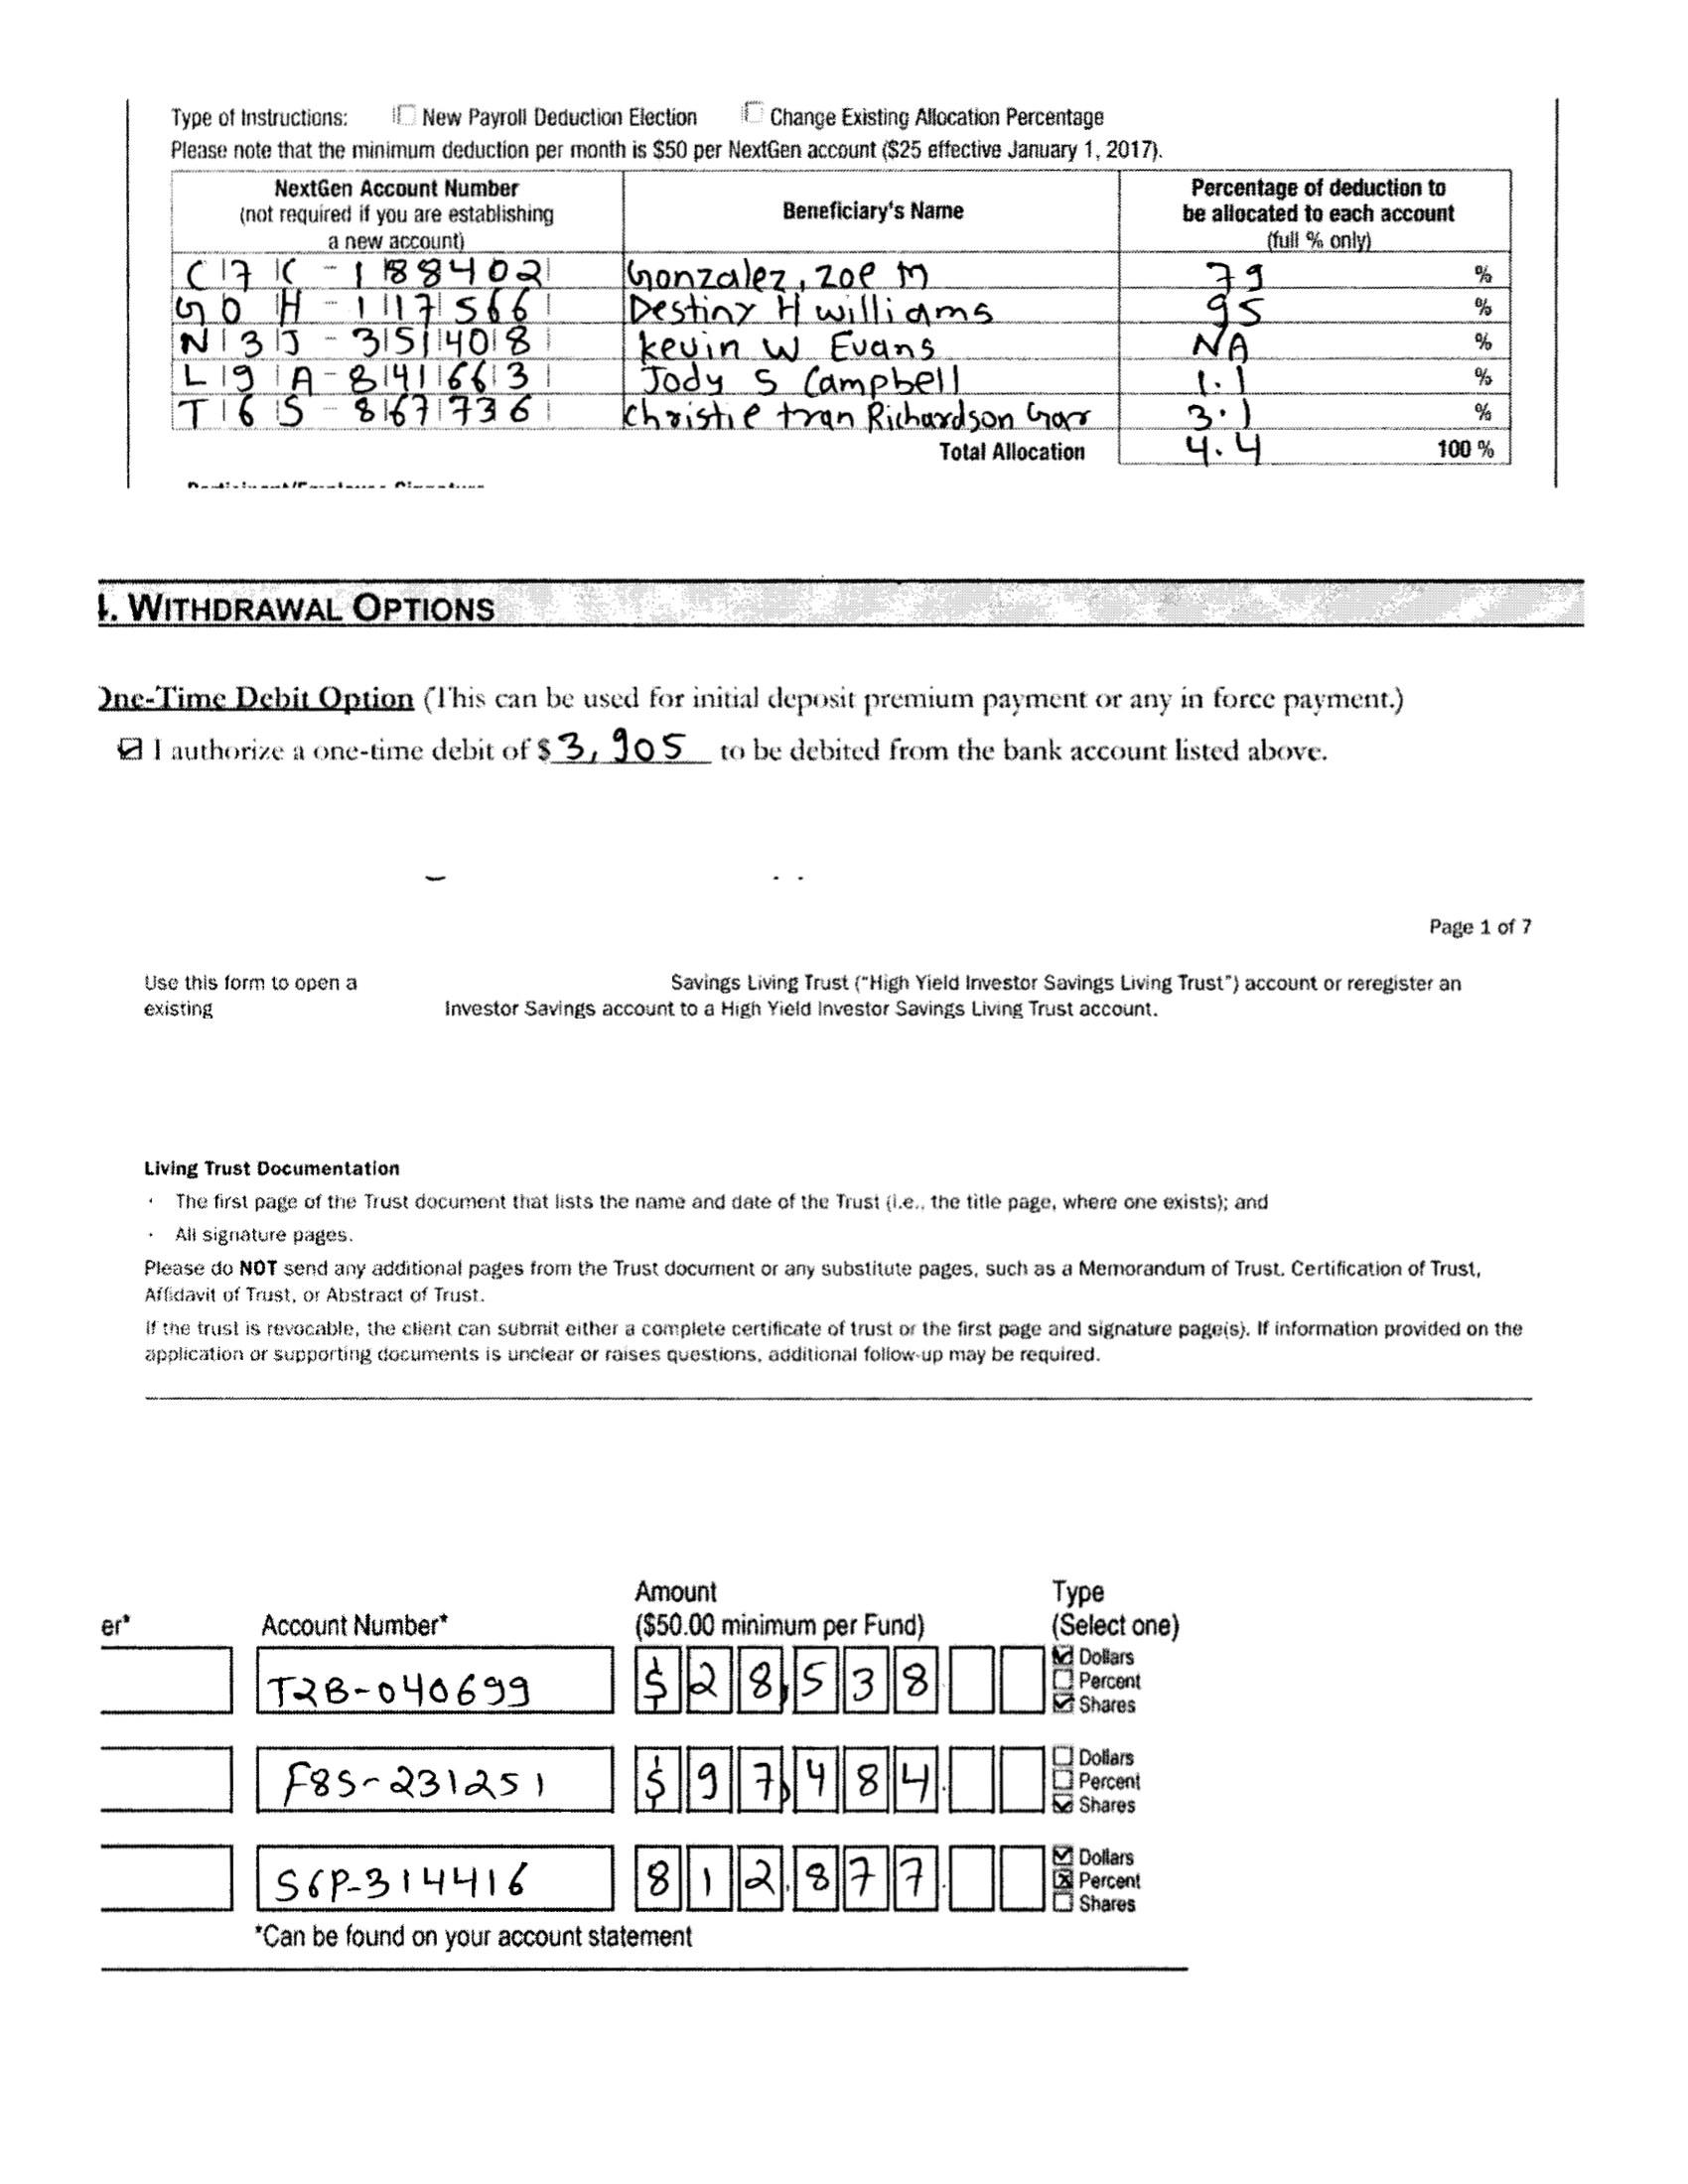 Type of Instructions: New Payroll Deduction Election Change Existing Allocation Percentage
Please note that the minimum deduction per month is $50 per NextGen account ($25 effective January 1, 2017).
NextGen Account Number
(not required if you are establishing
a new account)
Beneficiary's Name
Percentage of deduction to
be allocated to each account
(full % only)
C7C-188402 Gonzalez, Zoe M 79 %
G0H-117566 Destiny H Williams 95 %
N3J-3514018 Kevin W Evans NA %
L9A-841663 Jody S Campbell 1.1 %
T6S-867736 Christie Tran Richardson 3.1 %
Total Allocation 4.4 100 %
. WITHDRAWAL OPTIONS
One-Time Debit Option (This can be used for initial deposit premium payment or any in force payment.)
I authorize a one-time debit of $ 3,905 to be debited from the bank account listed above.
Page 1 of 7
Use this form to open a Savings Living Trust ("High Yield Investor Savings Living Trust") account or reregister an
existing Investor Savings account to a High Yield Investor Savings Living Trust account.
Living Trust Documentation
· The first page of the Trust document that lists the name and date of the Trust (i.e., the title page, where one exists); and
· All signature pages.
Please do NOT send any additional pages from the Trust document or any substitute pages, such as a Memorandum of Trust, Certification of Trust,
Affidavit of Trust, or Abstract of Trust.
If the trust is revocable, the client can submit either a complete certificate of trust or the first page and signature page(s). If information provided on the
application or supporting documents is unclear or raises questions, additional follow-up may be required.
er* Account Number* Amount
($50.00 minimum per Fund) Type
(Select one)
T2B-040699 $28,538. Dollars
Percent
Shares
F8S-231251 $97,484. Dollars
Percent
Shares
S6P-314416 812,877. Dollars
Percent
Shares
*Can be found on your account statement